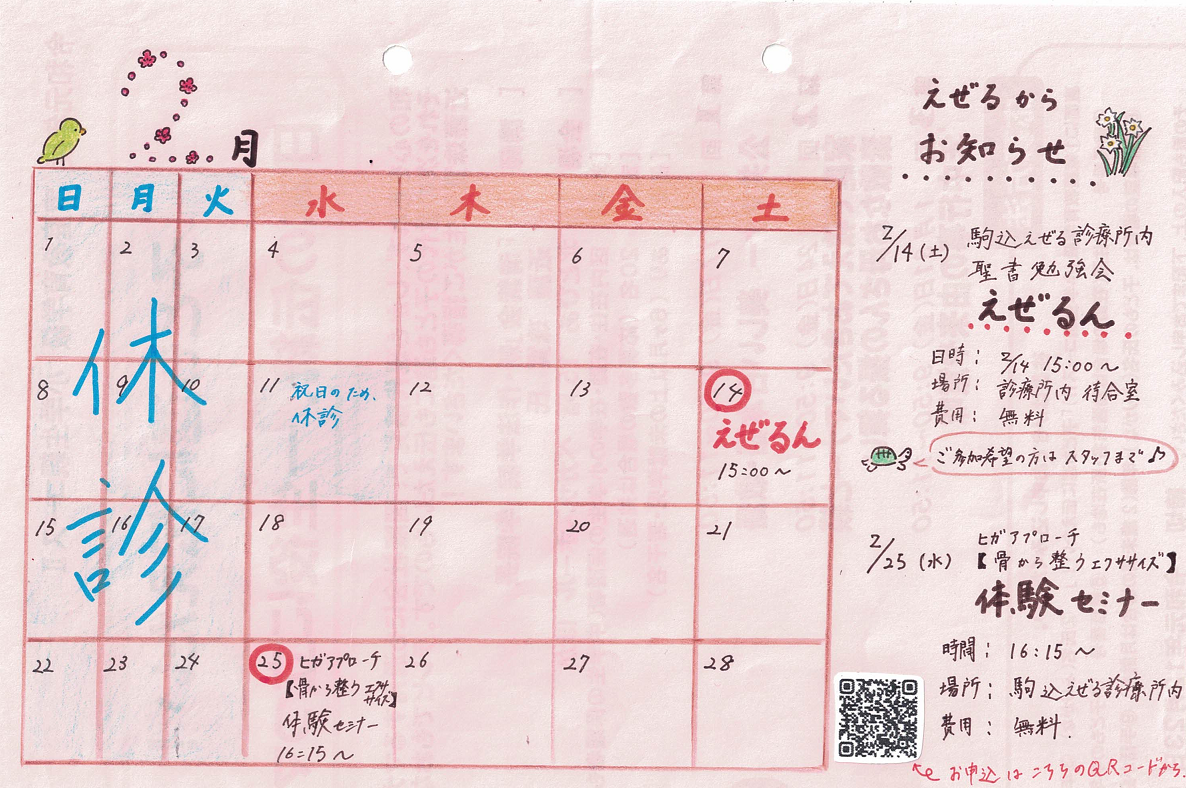 2月
日 月 火 水 木 金 土
1 2 3 4 5 6 7
8 9 10 11 12 13 14
祝日のため、
休診
えぜるん
15:00~
15 16 17 18 19 20 21
22 23 24 25 26 27 28
ヒガアプローチ
【骨から整うエクササイズ】
体験セミナー
16:15~
休診
えぜるから
お知らせ
2/14(土) 駒込えぜる診療所内
聖書勉強会
えぜるん
日時: 2/14 15:00~
場所: 診療所内 待合室
費用: 無料
ご参加希望の方はスタッフまで♪
2/25(水) ヒガアプローチ
【骨から整うエクササイズ】
体験セミナー
時間: 16:15~
場所: 駒込えぜる診療所内
費用: 無料.
お申込はこちらのQRコードから.